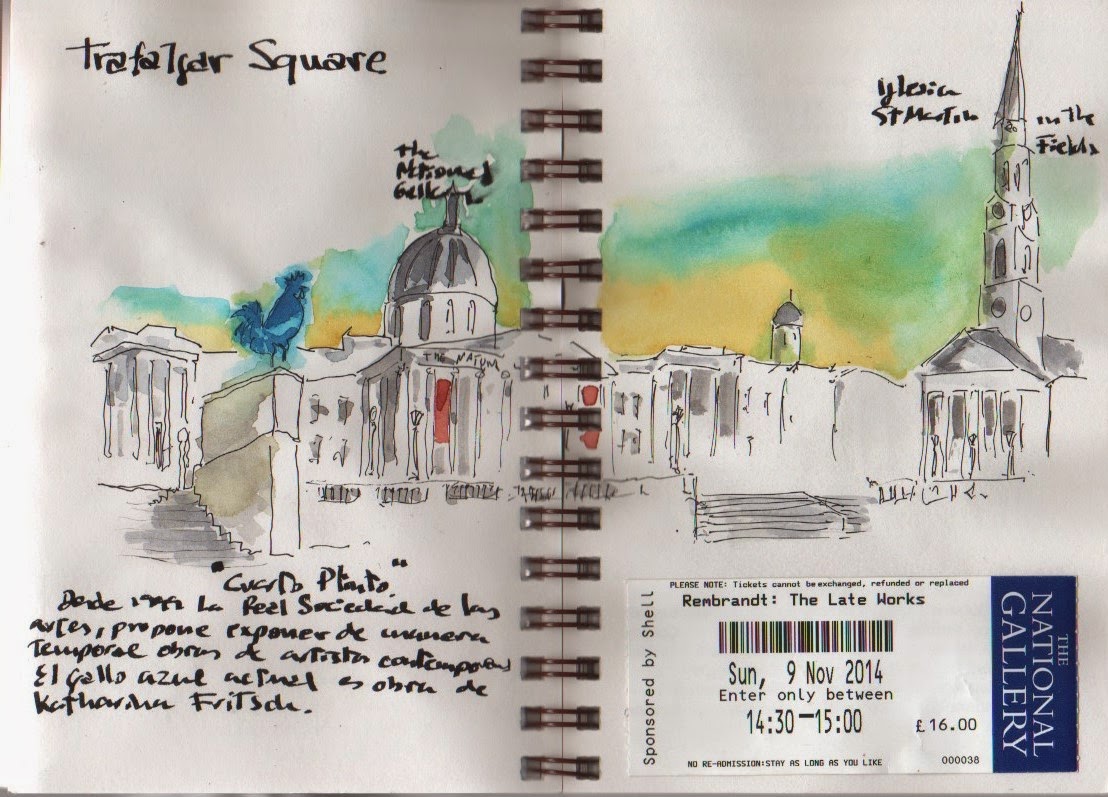 Trafalgar Square
The
National
Gallery
Iglesia
St Martin in the
Fields
THE NATION
"Cuarto Plinto."
Desde 1999 La Real Sociedad de las
artes, propone exponer de manera
Temporal obras de artistas contemporaneos
El gallo azul actual es obra de
Katharina Fritsch.
PLEASE NOTE: Tickets cannot be exchanged, refunded or replaced
Rembrandt: The Late Works
Sponsored by Shell
Sun, 9 Nov 2014
Enter only between
14:30–15:00
£16.00
NO RE-ADMISSION:STAY AS LONG AS YOU LIKE
000038
THE
NATIONAL
GALLERY